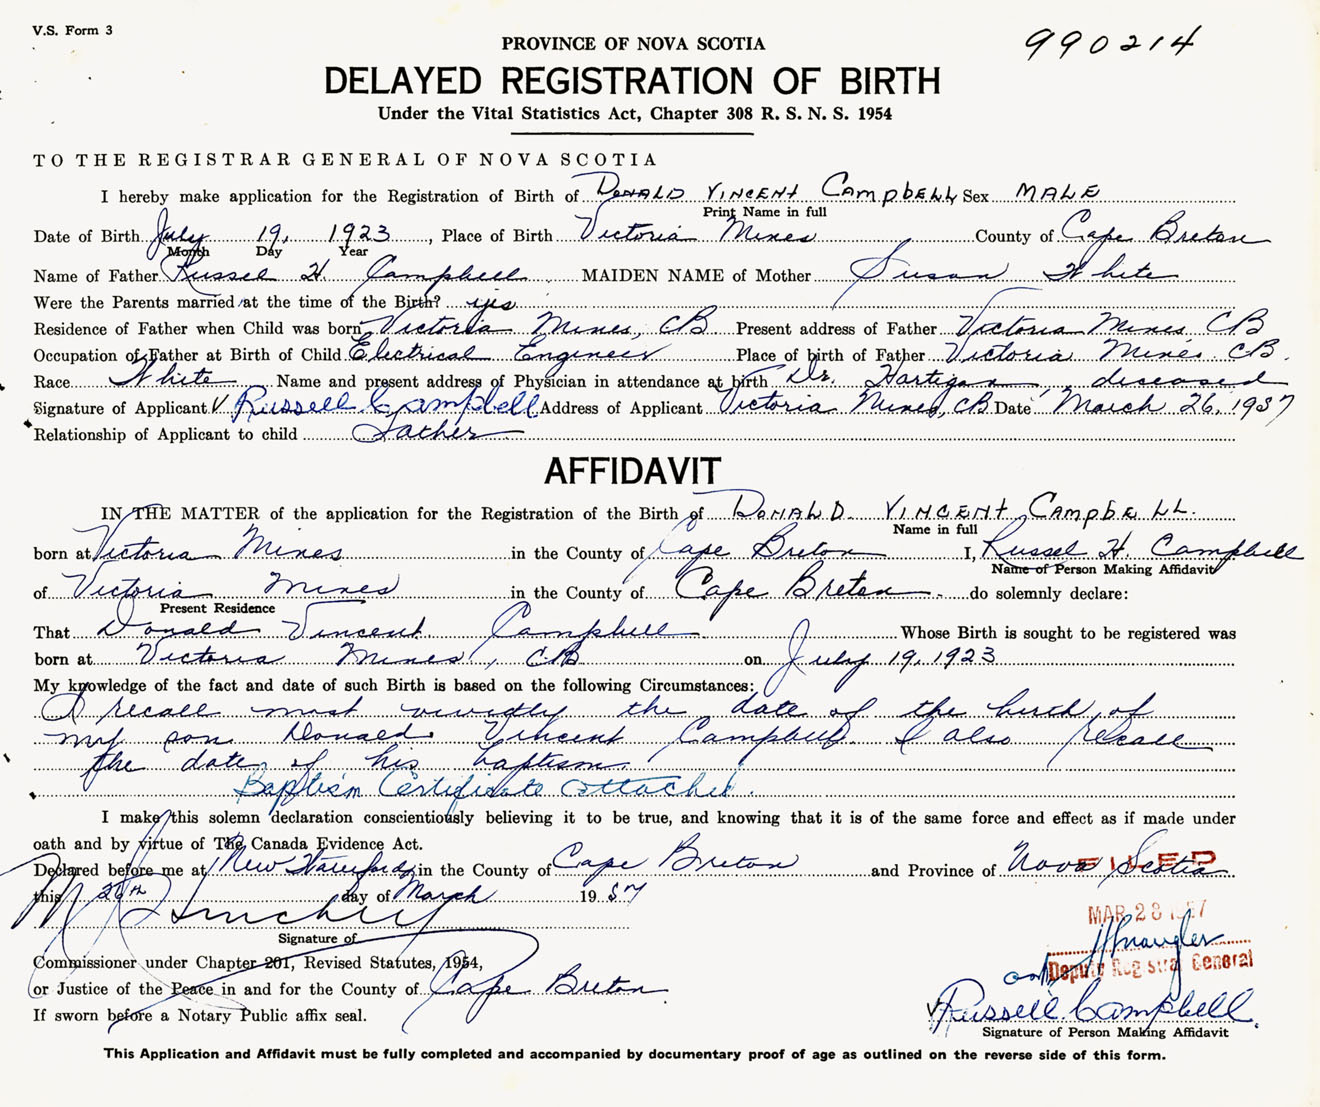 V.S. Form 3
990214
PROVINCE OF NOVA SCOTIA
DELAYED REGISTRATION OF BIRTH
Under the Vital Statistics Act, Chapter 308 R. S. N. S. 1954
TO THE REGISTRAR GENERAL OF NOVA SCOTIA
I hereby make application for the Registration of Birth of DONALD VINCENT CAMPBELL Sex MALE
Print Name in full
Date of Birth July 19, 1923, Place of Birth Victoria Mines County of Cape Breton
Month Day Year
Name of Father Russel H. Campbell MAIDEN NAME of Mother Susan White
Were the Parents married at the time of the Birth? yes
Residence of Father when Child was born Victoria Mines, CB Present address of Father Victoria Mines CB
Occupation of Father at Birth of Child Electrical Engineer Place of birth of Father Victoria Mines CB.
Race White Name and present address of Physician in attendance at birth Dr. Hartigan, diseased
Signature of Applicant V Russell Campbell Address of Applicant Victoria Mines, CB Date March 26, 1957
Relationship of Applicant to child Father
AFFIDAVIT
IN THE MATTER of the application for the Registration of the Birth of DONALD VINCENT CAMPBELL.
Name in full
born at Victoria Mines in the County of Cape Breton I, Russel H. Campbell
Name of Person Making Affidavit
of Victoria Mines in the County of Cape Breton do solemnly declare:
Present Residence
That Donald Vincent Campbell Whose Birth is sought to be registered was
born at Victoria Mines, CB on July 19, 1923
My knowledge of the fact and date of such Birth is based on the following Circumstances:
I recall most vividly the date of the birth of
my son Donald Vincent Campbell. I also recall
the date of his baptism.
Baptism Certificate attached.
I make this solemn declaration conscientiously believing it to be true, and knowing that it is of the same force and effect as if made under
oath and by virtue of The Canada Evidence Act.
Declared before me at New Waterford in the County of Cape Breton and Province of Nova Scotia
FILED
this 26th day of March 1957
MAR 28 1957
Signature of
Deputy Registrar General
Commissioner under Chapter 201, Revised Statutes, 1954,
or Justice of the Peace in and for the County of Cape Breton
Russell Campbell.
If sworn before a Notary Public affix seal.
Signature of Person Making Affidavit
This Application and Affidavit must be fully completed and accompanied by documentary proof of age as outlined on the reverse side of this form.